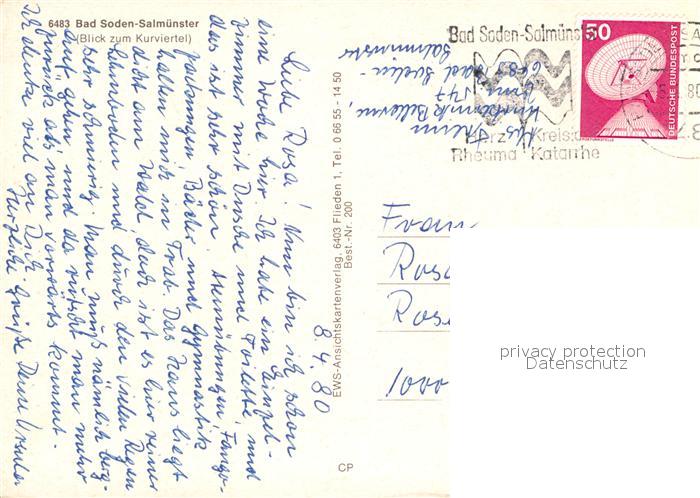 6483 Bad Soden-Salmünster
(Blick zum Kurviertel)
8.4.80
Liebe Rosa! Nun bin ich schon
eine Woche hier. Ich habe ein Einzel-
zimmer mit Dusche und Toilette, und
das ist sehr schön. Atemübungen, Fango-
packungen, Bäder und Gymnastik
halten mich in Trab. Das Haus liegt
dicht am Wald, doch ist es hier
und durch den vielen Regen
sehr schmierig. Man muß nämlich berg-
auf gehen und da rutscht man mehr
zurück als man vorwärts kommt.
Ich denke viel an Dich.
Herzliche Grüße Deine Ursula
EWS-Ansichtskartenverlag, 6403 Flieden 1, Tel. 0 66 55 - 14 50
Best.-Nr. 200
CP
Bad Soden-Salmünster
Rheuma Katarrhe
50
DEUTSCHE BUNDESPOST
80
6483 Bad Soden-
Salmünster
Frau
Rosa
Rose
1000
privacy protection
Datenschutz